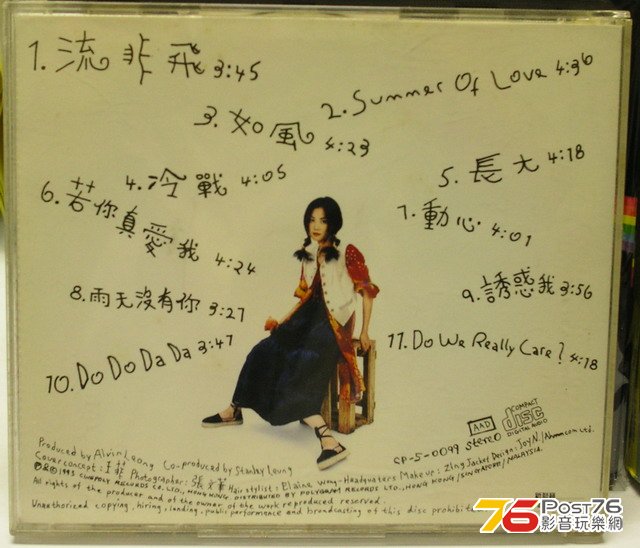 1. 流非飛 3:45
2. Summer Of Love 4:36
3. 如風 4:23
4. 冷戰 4:05
5. 長大 4:18
6. 若你真愛我 4:24
7. 動心 4:01
8. 雨天沒有你 3:27
9. 誘惑我 3:56
10. Do Do Da Da 3:47
11. Do We Really Care? 4:18
AAD
COMPACT
disc
DIGITAL AUDIO
CP-5-0099 stereo
Produced by Alvin Leong Co-produced by Stanley Leung
Cover concept: 王菲 Photographer: 張文華 Hair stylist: Elaine Wong-Headquaters Makeup: Zing Jacket Design: Joy N./Ahmm.com Ltd.
1993 CINEPOLY RECORDS CO., LTD., HONG KONG DISTRIBUTED BY POLYGRAM RECORDS LTD., HONG KONG/SINGAPORE/MALAYSIA.
All rights of the producer and of the owner of the work reproduced reserved.
Unauthorized copying, hiring, landing, public performence and brondcasting of this disc prohibit
76 POST76
影音玩樂網